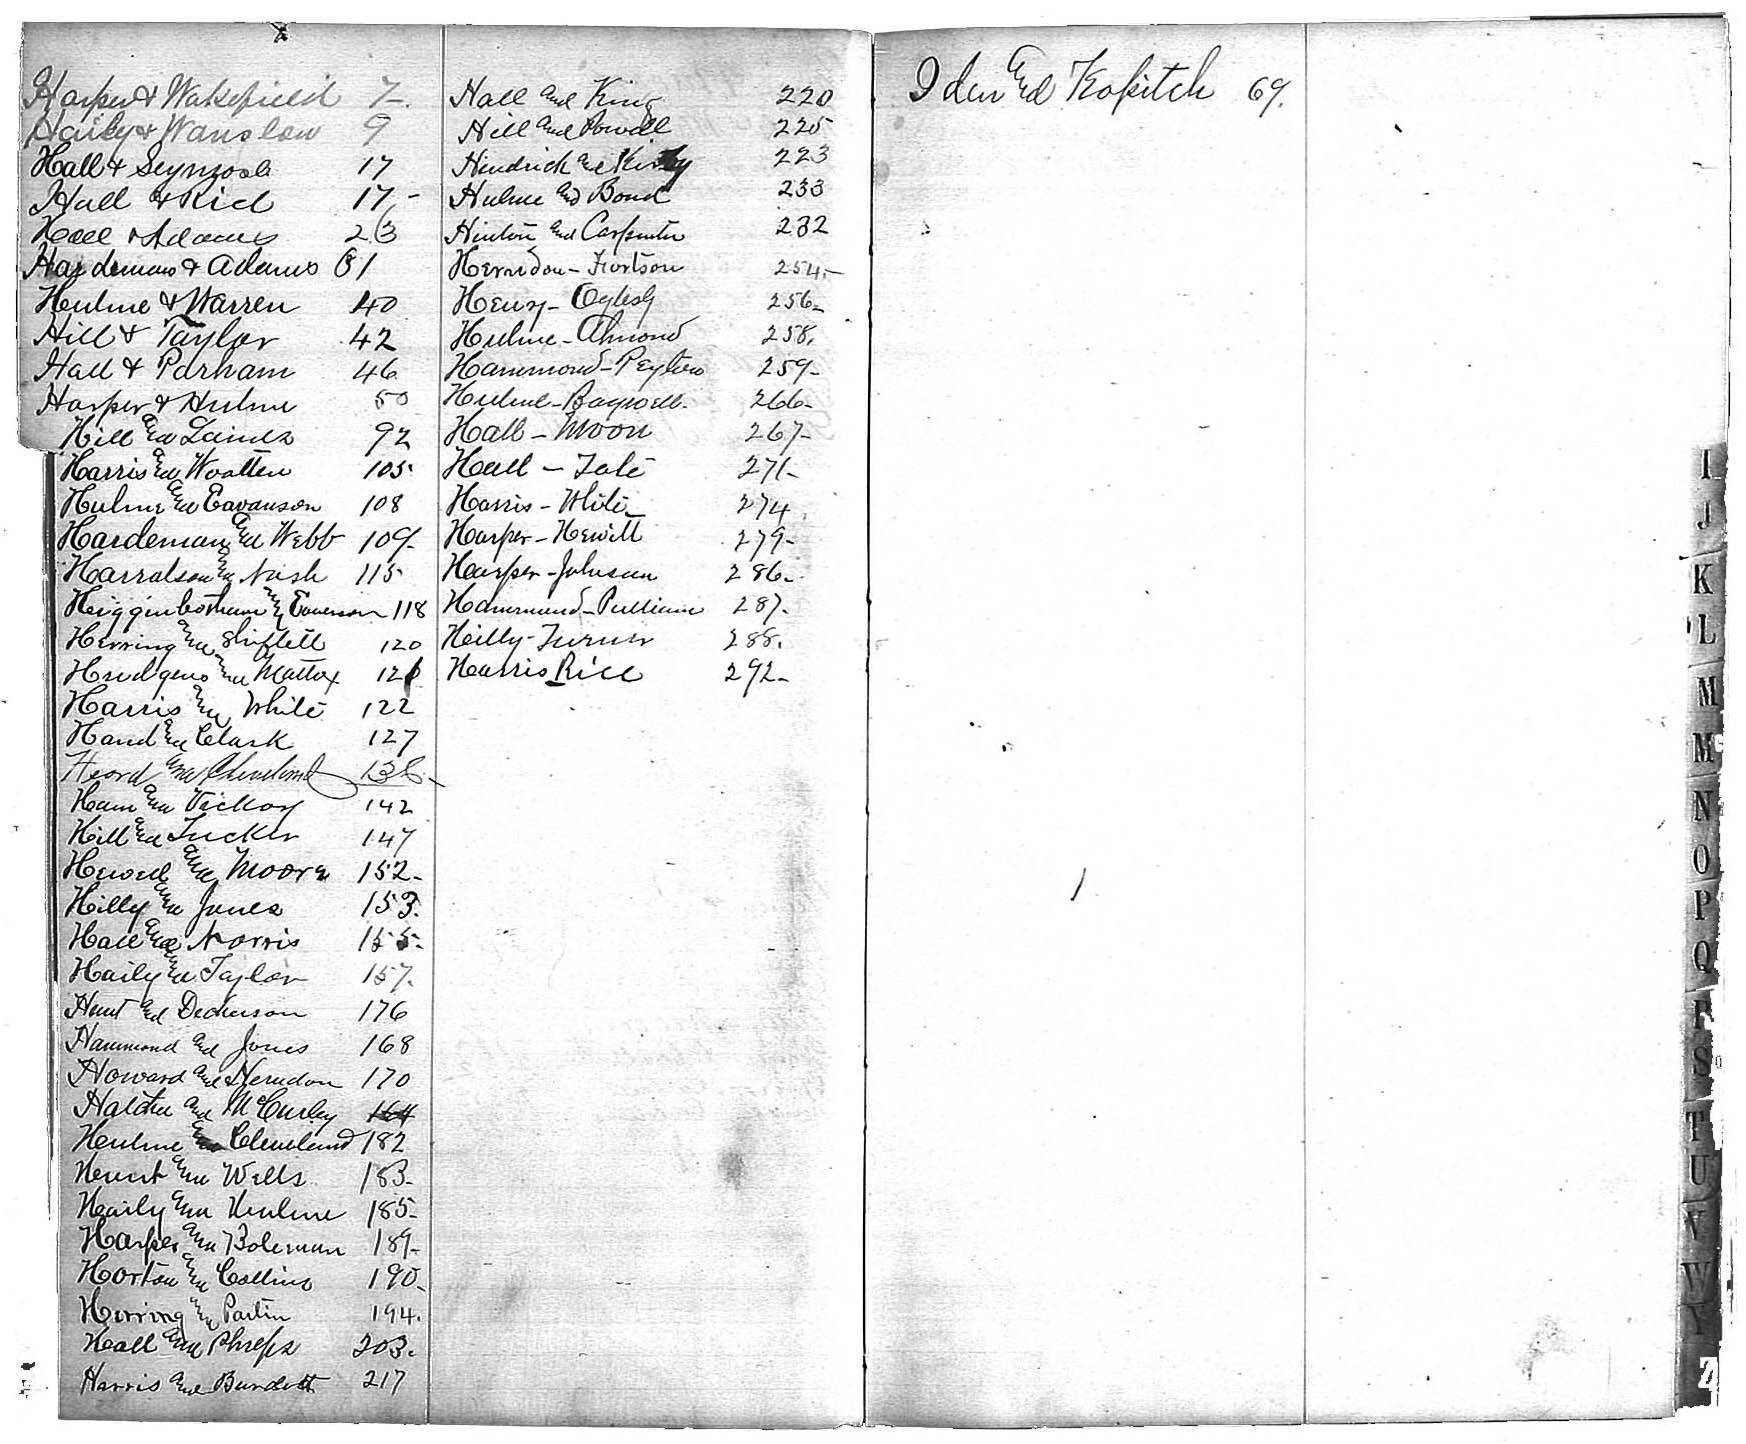 Harper & Wakefield 7-.
Haily & Wanslow 9
Hall & Seymore 17
Hall & Rice 17-
Hall & Adams 23
Hardeman & Adams 31
Hulme & Warren 40
Hill & Taylor 42
Hall & Parham 46
Harper & Hulme 50
Hill and 92
Harris and Wootten 105
Hulme and Eavanson 108
Hardeman and Webb 109-
Harralson and Nash 115
Higginbotham and Eaverson 118
Herring and Shiflett 120
Hudgens and Mattox 121
Harris and White 122
Hand and Clark 127
Heard and Cleveland 136-
Ham and Vickory 142
Hill and Tucker 147
Hewell and Moore 152-
Hilly and Jones 153.
Hall and Norris 155-
Haily and Taylor 157.
Hunt and Dickerson 176
Hammond and Jones 168
Howard and Herndon 170
and McCurley 164
Hulme and Cleveland 182
Hunt and Wells 183-
Haily and Hulme 185-
Harper and Boleman 189-
Horton and Collins 190-
Herring and Partin 194.
Hall and Phelps 203.
Harris and Burdett 217
Hall and King 220
Hill and Powell 225
Hendrick and Kirby 223
Hulme and Bond 233
Hinton and Carpenter 232
Herndon - Fortson 254.-
Henry - Oglesby 256-
Hulme - Almond 258.
Hammond - Peyton 259-
Hulme - Bagwell. 266-
Hall - Moon 267-
Hall - Tate 271-
Harris - White 274.
Harper - Hewitt 279-
Harper - Johnson 286-.
Hammond - Pulliam 287.
Heilly - Turner 288.
Harris Rice 292-
Iden and Kopitch 69.
I
J
K
L
M
M
N
O
P
Q
R
S
T
U
V
W
Y
Z